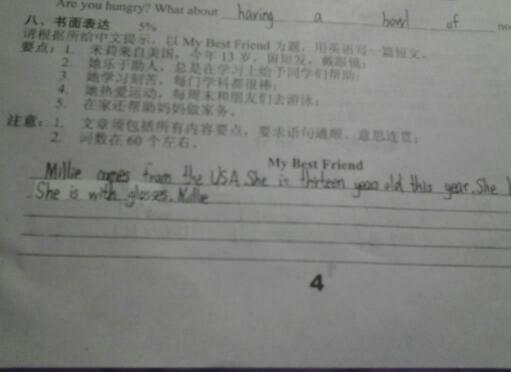 Are you hungry? What about having a bowl of
八、书面表达 5%
请根据所给中文提示，以 My Best Friend 为题，用英语写一篇短文。
要点：1. 米莉来自美国，今年 13 岁，留短发，戴眼镜；
2. 她乐于助人，总是在学习上给予同学们帮助；
3. 她学习刻苦，每门学科都很棒；
4. 她热爱运动，每周末和朋友们去游泳；
5. 在家还帮助妈妈做家务。
注意：1. 文章须包括所有内容要点，要求语句通顺、意思连贯；
2. 词数在 60 个左右。
My Best Friend
Millie comes from the USA. She is thirteen years old this year. She
She is with glasses. Millie
4